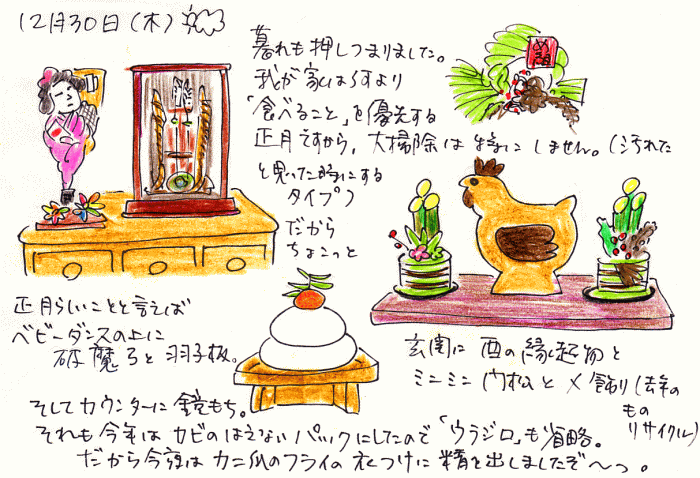 12月30日(木)
暮れも押しつまりました。
我が家はらすより
「食べること」を優先する
正月ですから、大掃除は特にしません。(汚れた
と思った時にする
タイプ)
だから
ちょこっと
正月らしいことと言えば
ベビーダンスの上に
破魔弓と羽子板。
玄関に酉の縁起物と
ミニミニ門松と〆飾り(去年の
もの
リサイクル)
そしてカウンターに鏡もち。
それも今年はカビのはえないパックにしたので「ウラジロ」も省略。
だから今夜はカニ爪のフライの衣つけに精を出しましたぞ〜っ。